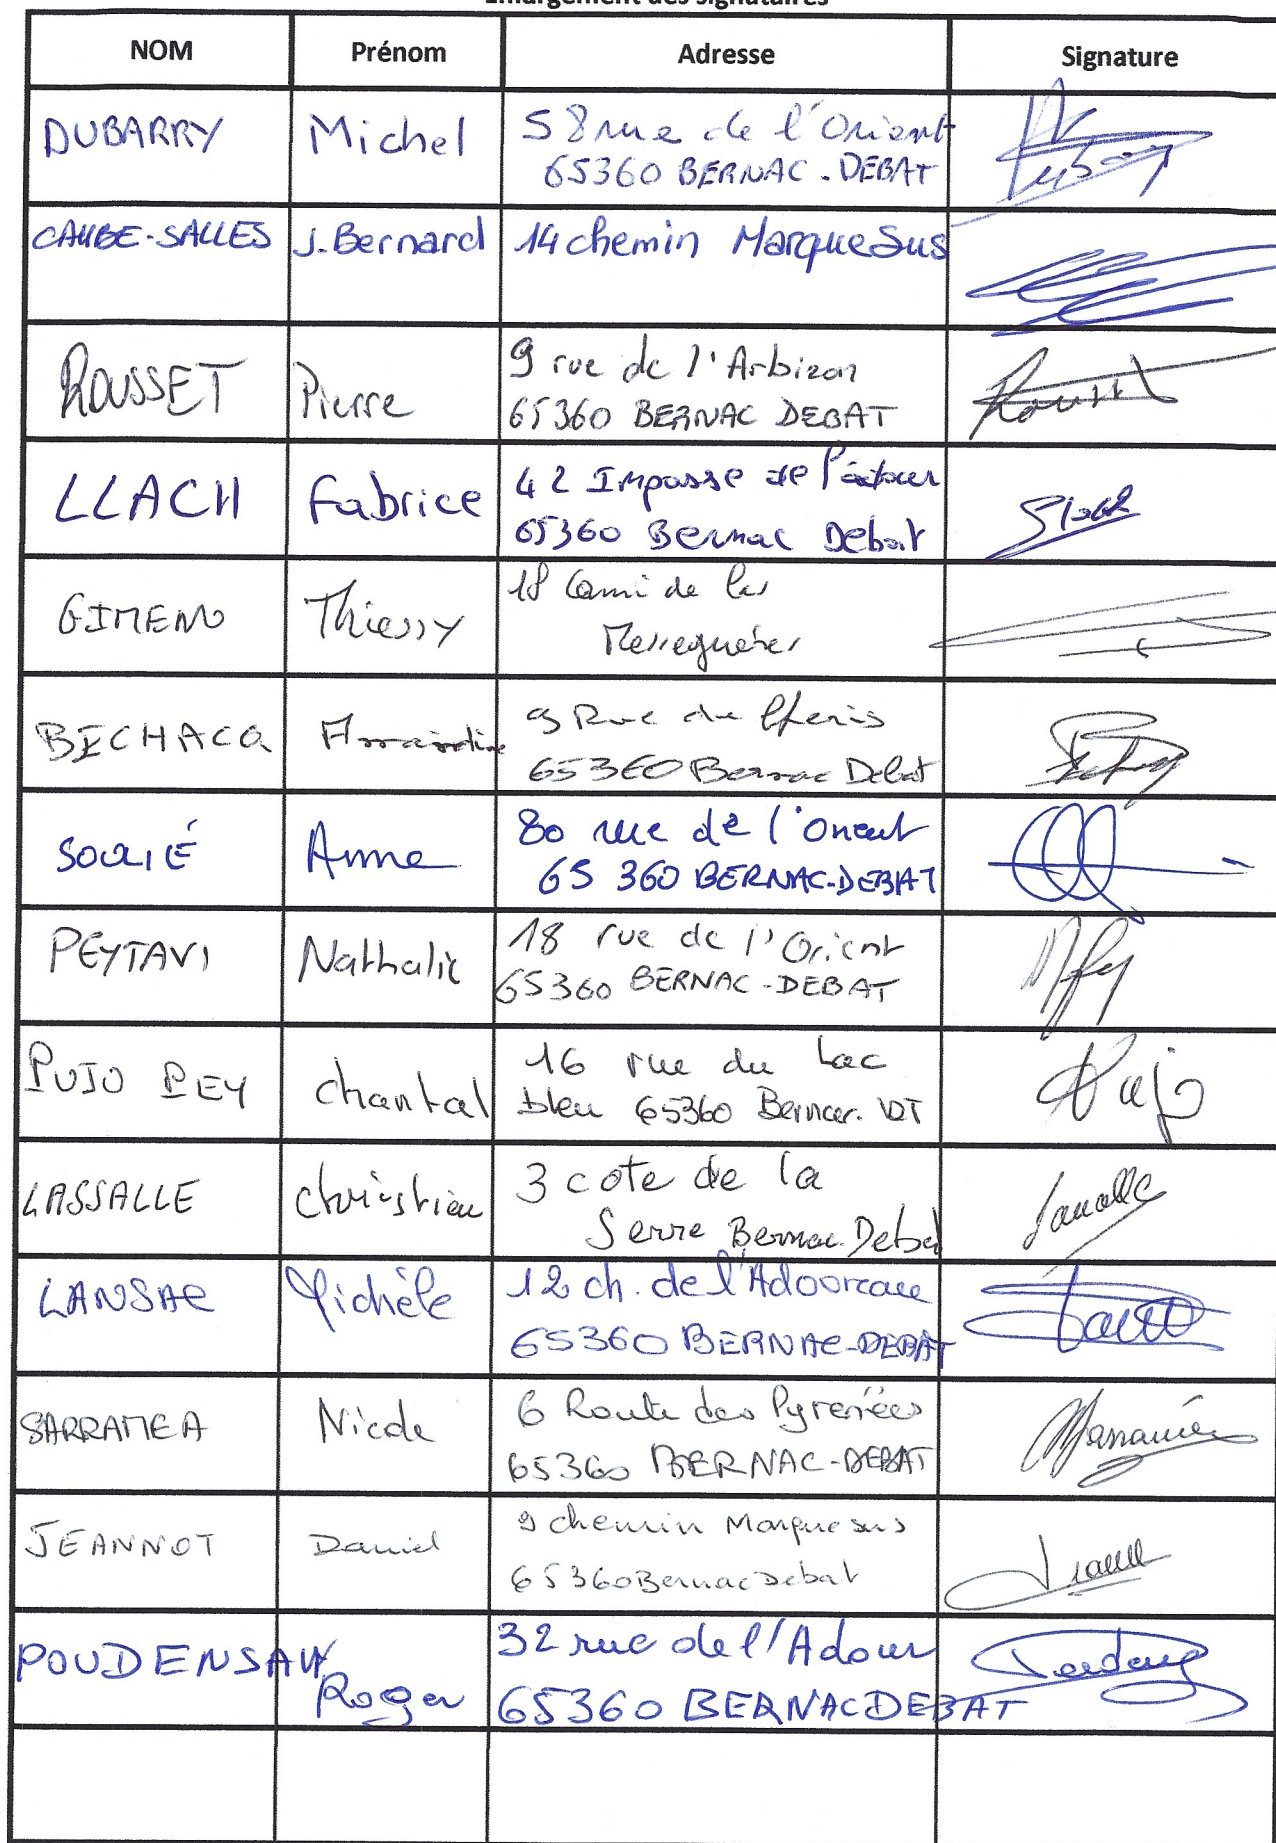 Emargement des signataires
NOM Prénom Adresse Signature
DUBARRY Michel 58 rue de l'Orient
65360 BERNAC-DEBAT
CAUBE-SALLES J.Bernard 14 chemin MarqueSus
ROUSSET Pierre 9 rue de l'Arbizon
65360 BERNAC DEBAT
LLACH Fabrice 42 Impasse de l'adour
65360 Bernac Debat
GIMENO Thierry 18 Cami de las
BECHACQ Amandine 9 Rue du
65360 Bernac Debat
SOULIÉ Anne 80 rue de l'Orient
65 360 BERNAC-DEBAT
PEYTAVI Nathalie 18 rue de l'Orient
65360 BERNAC-DEBAT
PUJO PEY chantal 16 rue du Lac
bleu 65360 Bernac. DT
LASSALLE christian 3 cote de la
Serre Bernac Debat
LANSAC Michèle 12 ch. de l'Adourcau
65360 BERNAC-DEBAT
SARRAMEA Nicole 6 Route des Pyrenées
65360 BERNAC-DEBAT
JEANNOT Daniel 9 chemin Marque sus
65360 Bernac Debat
POUDENSAN Roger 32 rue de l'Adour
65360 BERNAC DEBAT